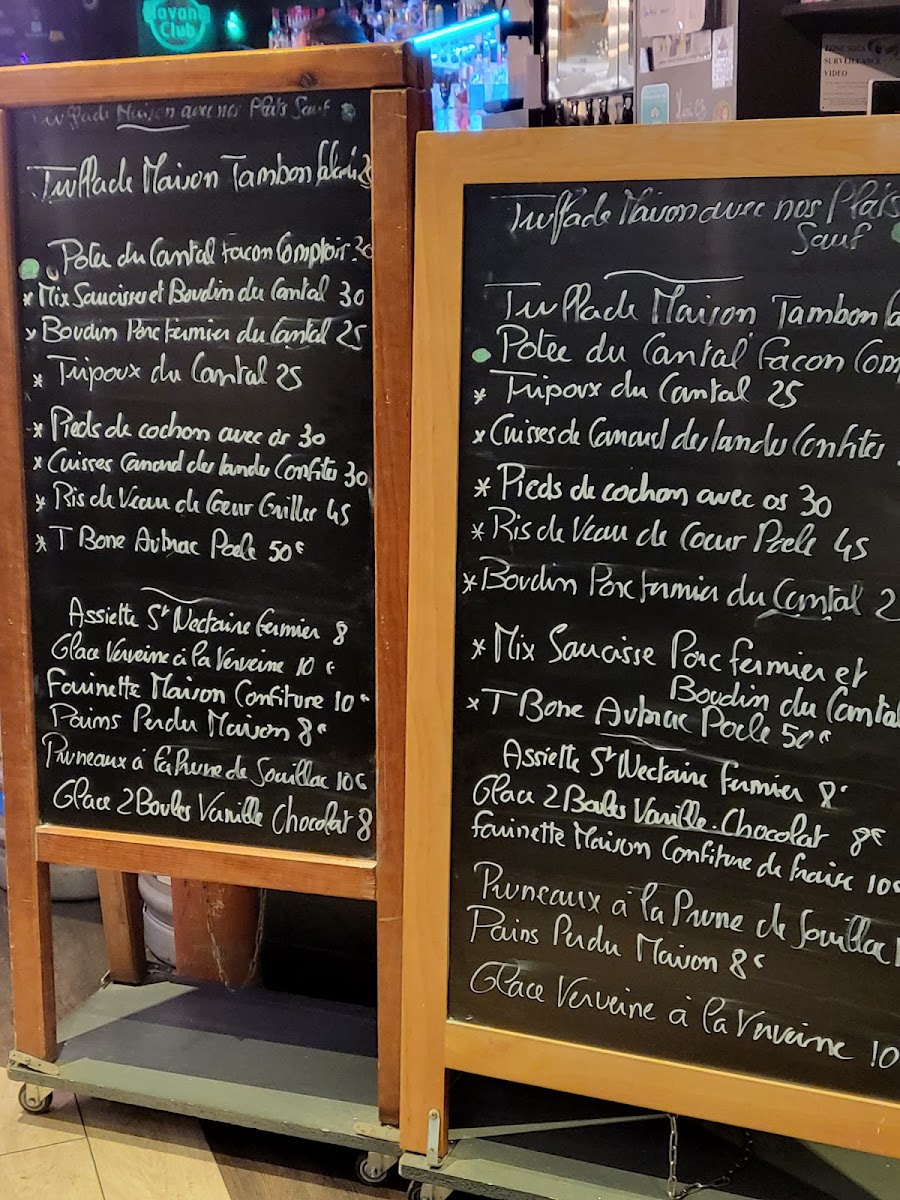 Havana
Club
SURVEILLANCE
VIDEO
Truffade Maison avec nos Plats Sauf
Truffade Maison Jambon
Potée du Cantal Façon Comptoir 30
* Mix Saucisse et Boudin du Cantal 30
* Boudin Porc fermier du Cantal 25
* Tripoux du Cantal 25
* Pieds de cochon avec os 30
* Cuisses Canard des landes Confites 30
* Ris de Veau de Coeur Griller 45
* T Bone Aubrac Poele 50€
Assiette St Nectaire fermier 8
Glace Verveine à la Verveine 10 €
Farinette Maison Confiture 10€
Pains Perdu Maison 8€
Pruneaux à la Prune de Souillac 10€
Glace 2 Boules Vanille Chocolat 8
Truffade Maison avec nos Plats
Sauf
Truffade Maison Jambon
Potée du Cantal Façon Com
* Tripoux du Cantal 25
* Cuisses de Canard des landes Confites
* Pieds de cochon avec os 30
* Ris de Veau de Coeur Poele 45
* Boudin Porc fermier du Cantal 2
* Mix Saucisse Porc fermier et
Boudin du Cantal
* T Bone Aubrac Poele 50€
Assiette St Nectaire fermier 8€
Glace 2 Boules Vanille.Chocolat 8€
Farinette Maison Confiture de fraise 10€
Pruneaux à la Prune de Souillac 1
Pains Perdu Maison 8€
Glace Verveine à la Verveine 10